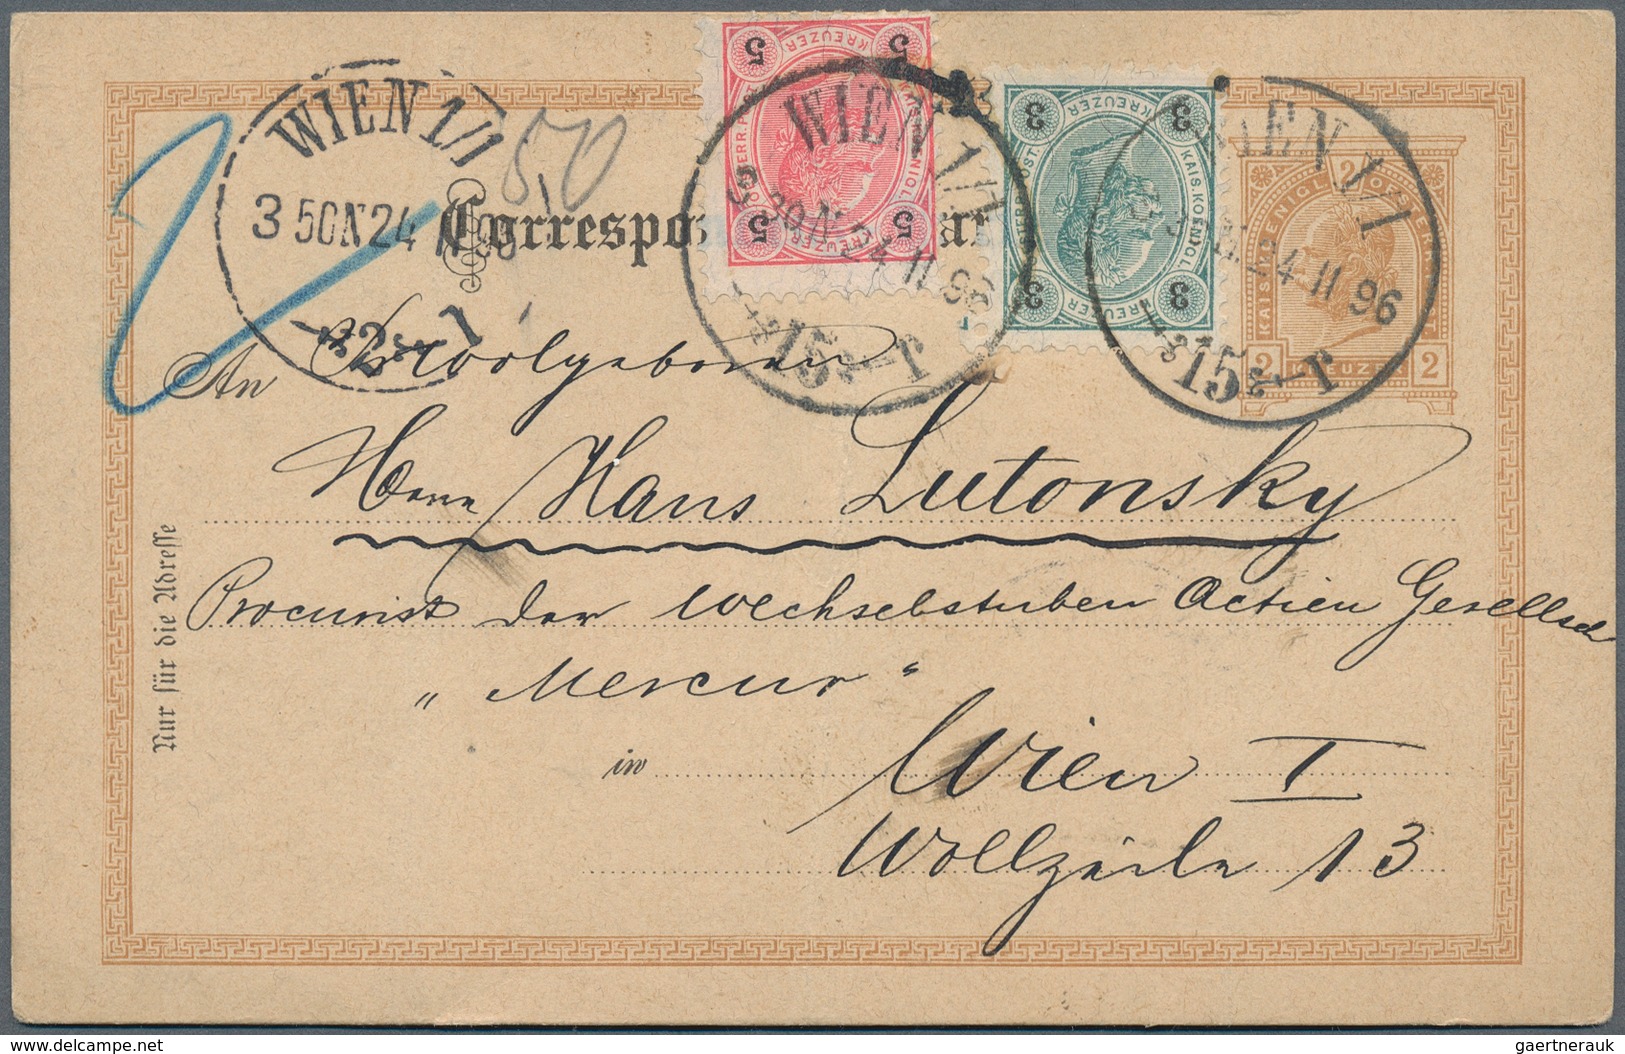 WIEN 1/1
3 50N24
1
50
5 5
KREUZER
5 5
KREUZER
WIEN 1/1
24 II 96
15 T
3 3
KREUZER
KAIS.KOENIGL.
3 3
KREUZER
WIEN 1/1
24 II 96
15 T
2
KAIS KOENIGL OESTERR.
2 KREUZER 2
Correspo ar
An Wolgeboren
Herrn Hans Lutonsky
Procurist der Wechselstuben Actien Gesellsch
„ Mercur "
in Wien I
Wollzeile 13
Nur für die Adresse
delcampe.net
gaertnerauk